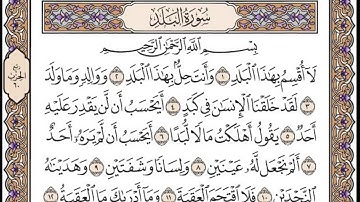 سُورَةُ الْبَلَدِ
بِسْمِ اللَّهِ الرَّحْمَٰنِ الرَّحِيمِ
لَا أُقْسِمُ بِهَٰذَا الْبَلَدِ ١ وَأَنتَ حِلٌّ بِهَٰذَا الْبَلَدِ ٢ وَوَالِدٍ وَمَا وَلَدَ
٣ لَقَدْ خَلَقْنَا الْإِنسَانَ فِي كَبَدٍ ٤ أَيَحْسَبُ أَن لَّن يَقْدِرَ عَلَيْهِ
أَحَدٌ ٥ يَقُولُ أَهْلَكْتُ مَالًا لُّبَدًا ٦ أَيَحْسَبُ أَن لَّمْ يَرَهُ أَحَدٌ
٧ أَلَمْ نَجْعَل لَّهُ عَيْنَيْنِ ٨ وَلِسَانًا وَشَفَتَيْنِ ٩ وَهَدَيْنَاهُ
النَّجْدَيْنِ ١٠ فَلَا اقْتَحَمَ الْعَقَبَةَ ١١ وَمَا أَدْرَاكَ مَا الْعَقَبَةُ ١٢
الحزب
٦٠